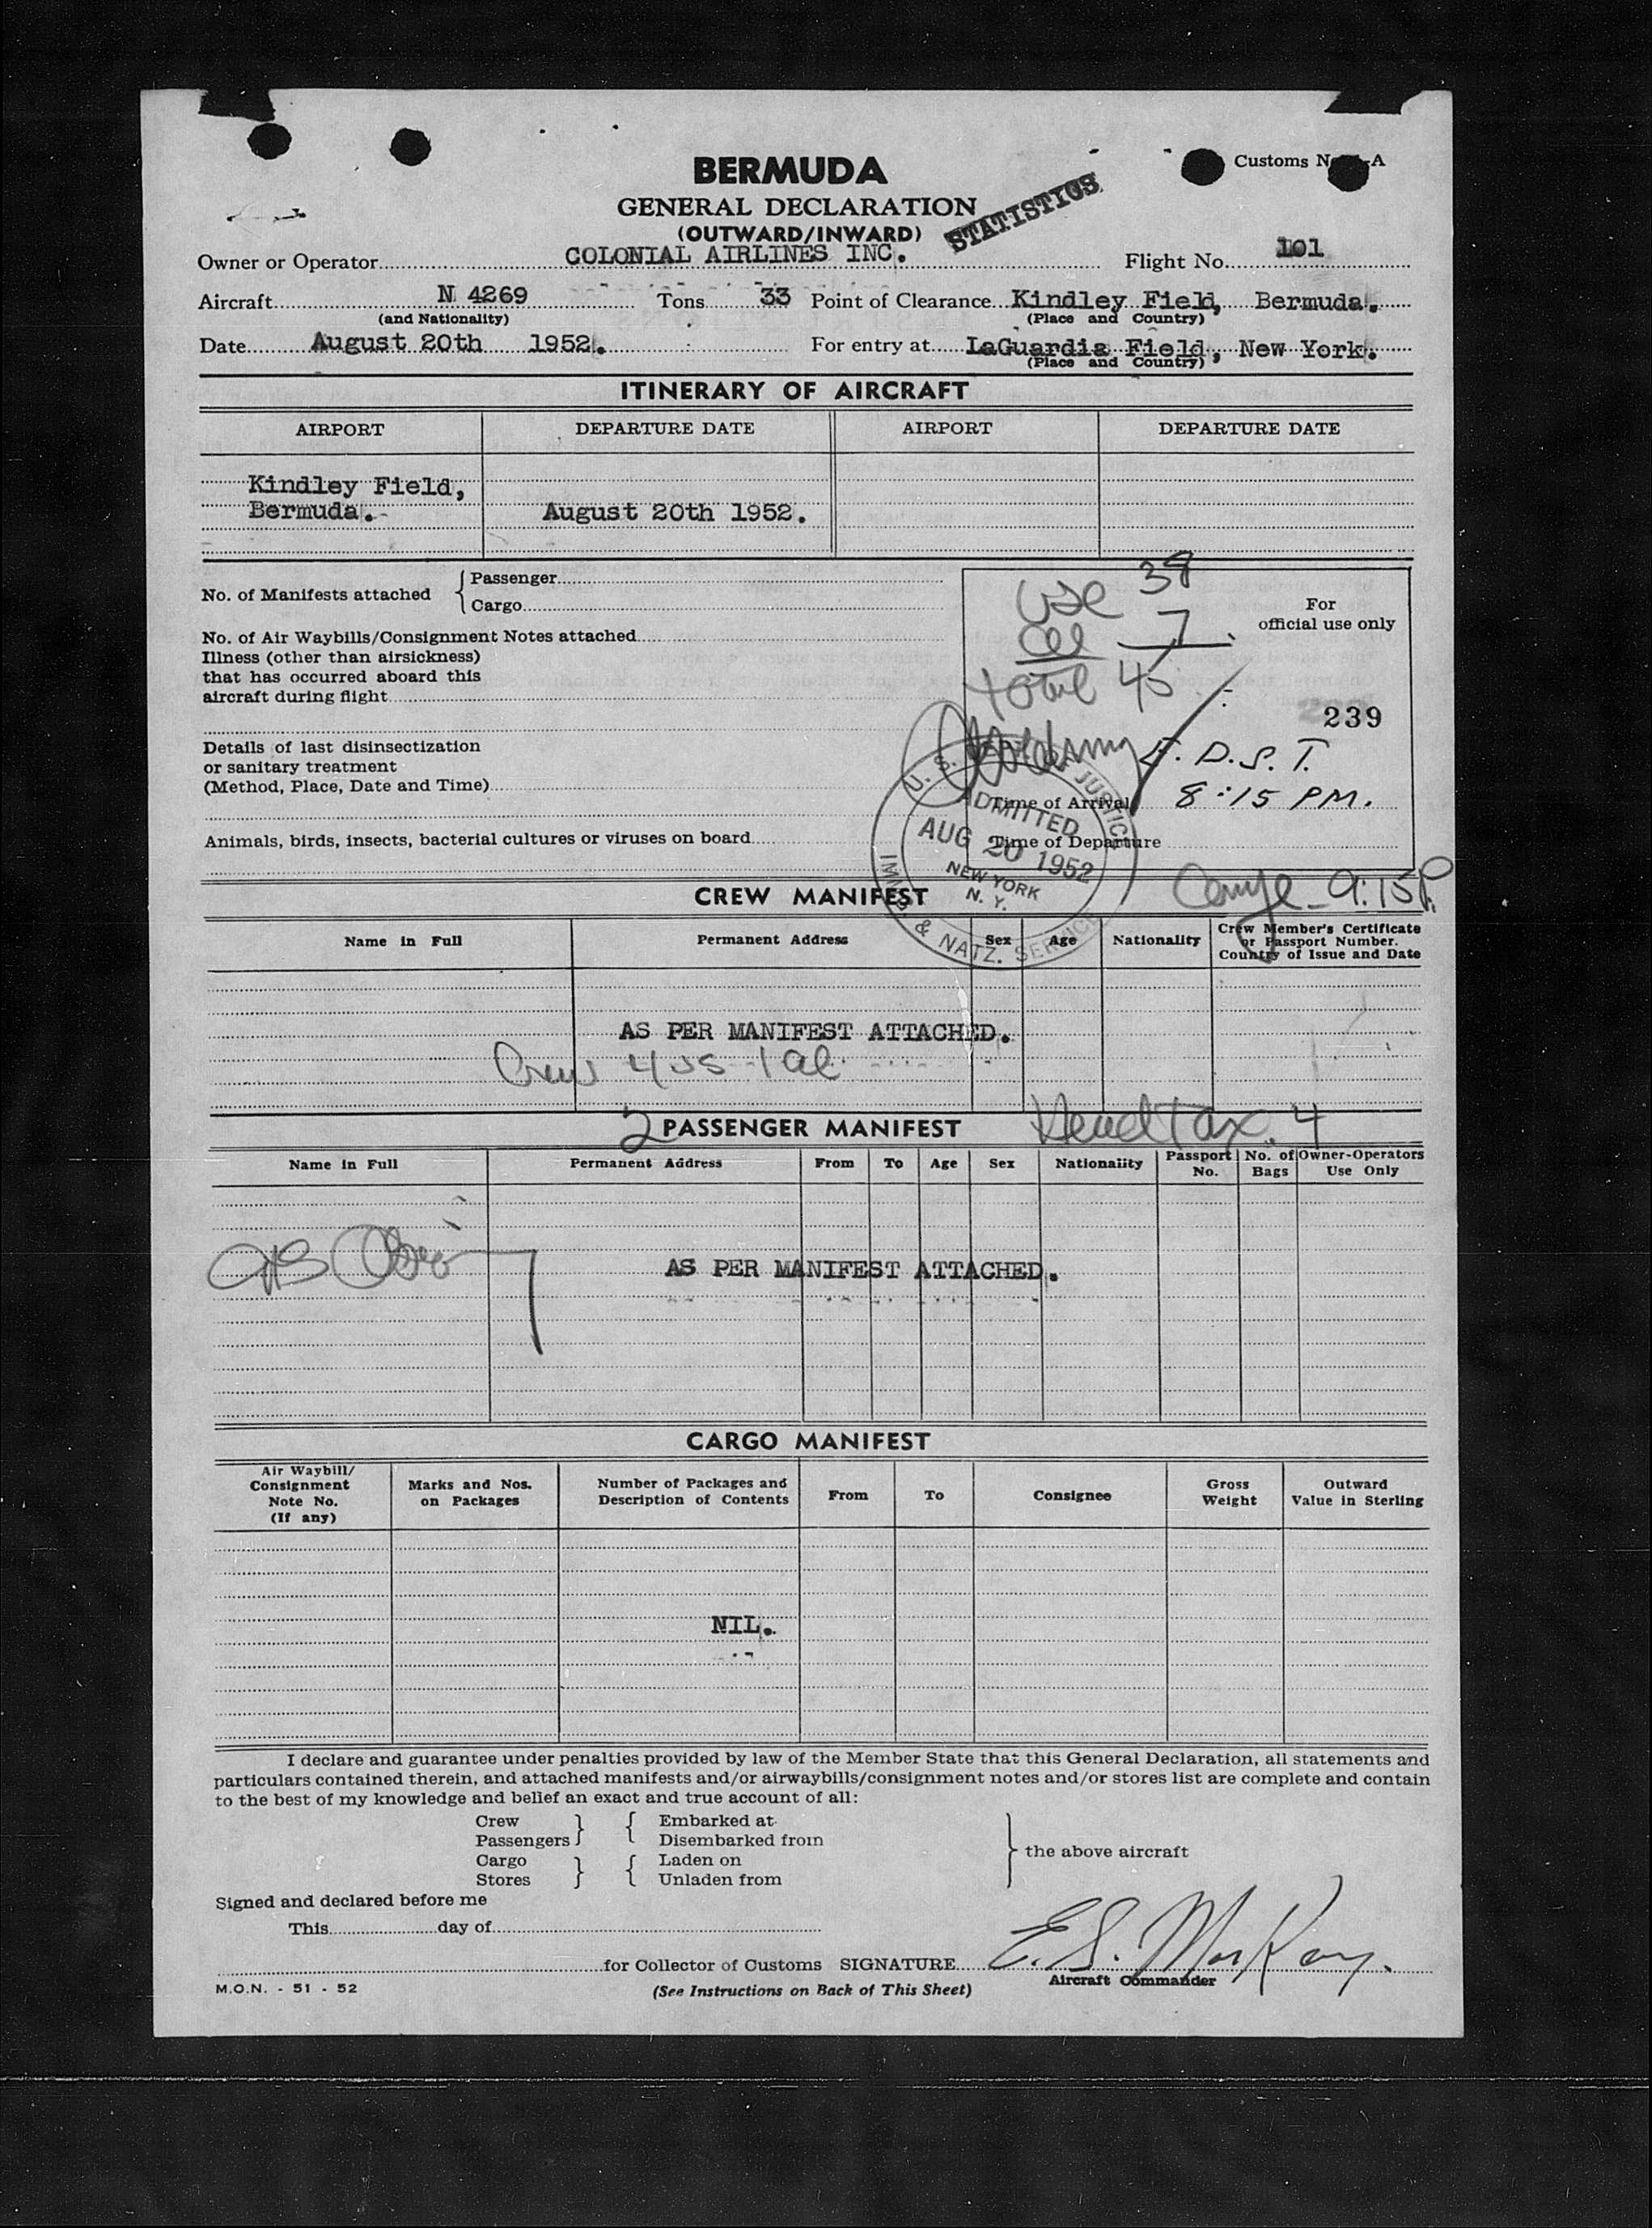 BERMUDA
Customs N A
GENERAL DECLARATION
(OUTWARD/INWARD)
STATISTICS
Owner or Operator COLONIAL AIRLINES INC. Flight No. 101
Aircraft N 4269 Tons 33 Point of Clearance Kindley Field, Bermuda.
(and Nationality) (Place and Country)
Date August 20th 1952. For entry at LaGuardia Field, New York.
(Place and Country)
ITINERARY OF AIRCRAFT
AIRPORT DEPARTURE DATE AIRPORT DEPARTURE DATE
Kindley Field,
Bermuda. August 20th 1952.
No. of Manifests attached { Passenger
Cargo
No. of Air Waybills/Consignment Notes attached
Illness (other than airsickness)
that has occurred aboard this
aircraft during flight
Details of last disinsectization
or sanitary treatment
(Method, Place, Date and Time)
Animals, birds, insects, bacterial cultures or viruses on board
38
7
Total 45
For
official use only
239
E. D.S.T.
Time of Arrival 8:15 PM.
Time of Departure
U. S. JUSTICE
ADMITTED
AUG 20 1952
NEW YORK
N. Y.
IMM. & NATZ. SERVICE
9:15P.
CREW MANIFEST
Name in Full Permanent Address Sex Age Nationality Crew Member's Certificate
or Passport Number.
Country of Issue and Date
AS PER MANIFEST ATTACHED.
Crew 4 us 1 al
2 PASSENGER MANIFEST Head Tax. 4
Name in Full Permanent Address From To Age Sex Nationality Passport No. No. of Bags Owner-Operators Use Only
AS PER MANIFEST ATTACHED.
CARGO MANIFEST
Air Waybill/
Consignment
Note No.
(If any)
Marks and Nos.
on Packages
Number of Packages and
Description of Contents
From To Consignee
Gross
Weight
Outward
Value in Sterling
NIL.
I declare and guarantee under penalties provided by law of the Member State that this General Declaration, all statements and
particulars contained therein, and attached manifests and/or airwaybills/consignment notes and/or stores list are complete and contain
to the best of my knowledge and belief an exact and true account of all:
Crew } { Embarked at
Passengers Disembarked from
Cargo } { Laden on
Stores Unladen from
} the above aircraft
Signed and declared before me
This day of
for Collector of Customs SIGNATURE E. S. MacKay.
Aircraft Commander
M.O.N. - 51 - 52
(See Instructions on Back of This Sheet)